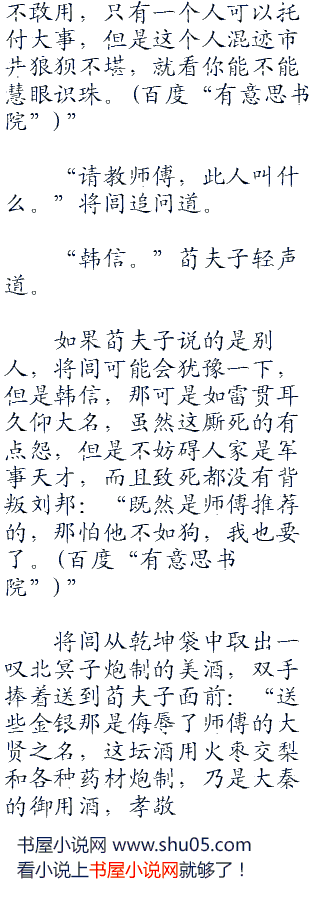 不敢用，只有一个人可以托
付大事，但是这个人混迹市
井狼狈不堪，就看你能不能
慧眼识珠。(百度“有意思书
院”)”
“请教师傅，此人叫什
么。”将闾追问道。
“韩信。”荀夫子轻声
道。
如果荀夫子说的是别
人，将闾可能会犹豫一下，
但是韩信，那可是如雷贯耳
久仰大名，虽然这厮死的有
点怨，但是不妨碍人家是军
事天才，而且致死都没有背
叛刘邦：“既然是师傅推荐
的，那怕他不如狗，我也要
了。(百度“有意思书
院”)”
将闾从乾坤袋中取出一
坛北冥子炮制的美酒，双手
捧着送到荀夫子面前：“送
些金银那是侮辱了师傅的大
贤之名，这坛酒用火枣交梨
和各种药材炮制，乃是大秦
的御用酒，孝敬
书屋小说网 www.shu05.com
看小说上书屋小说网就够了！